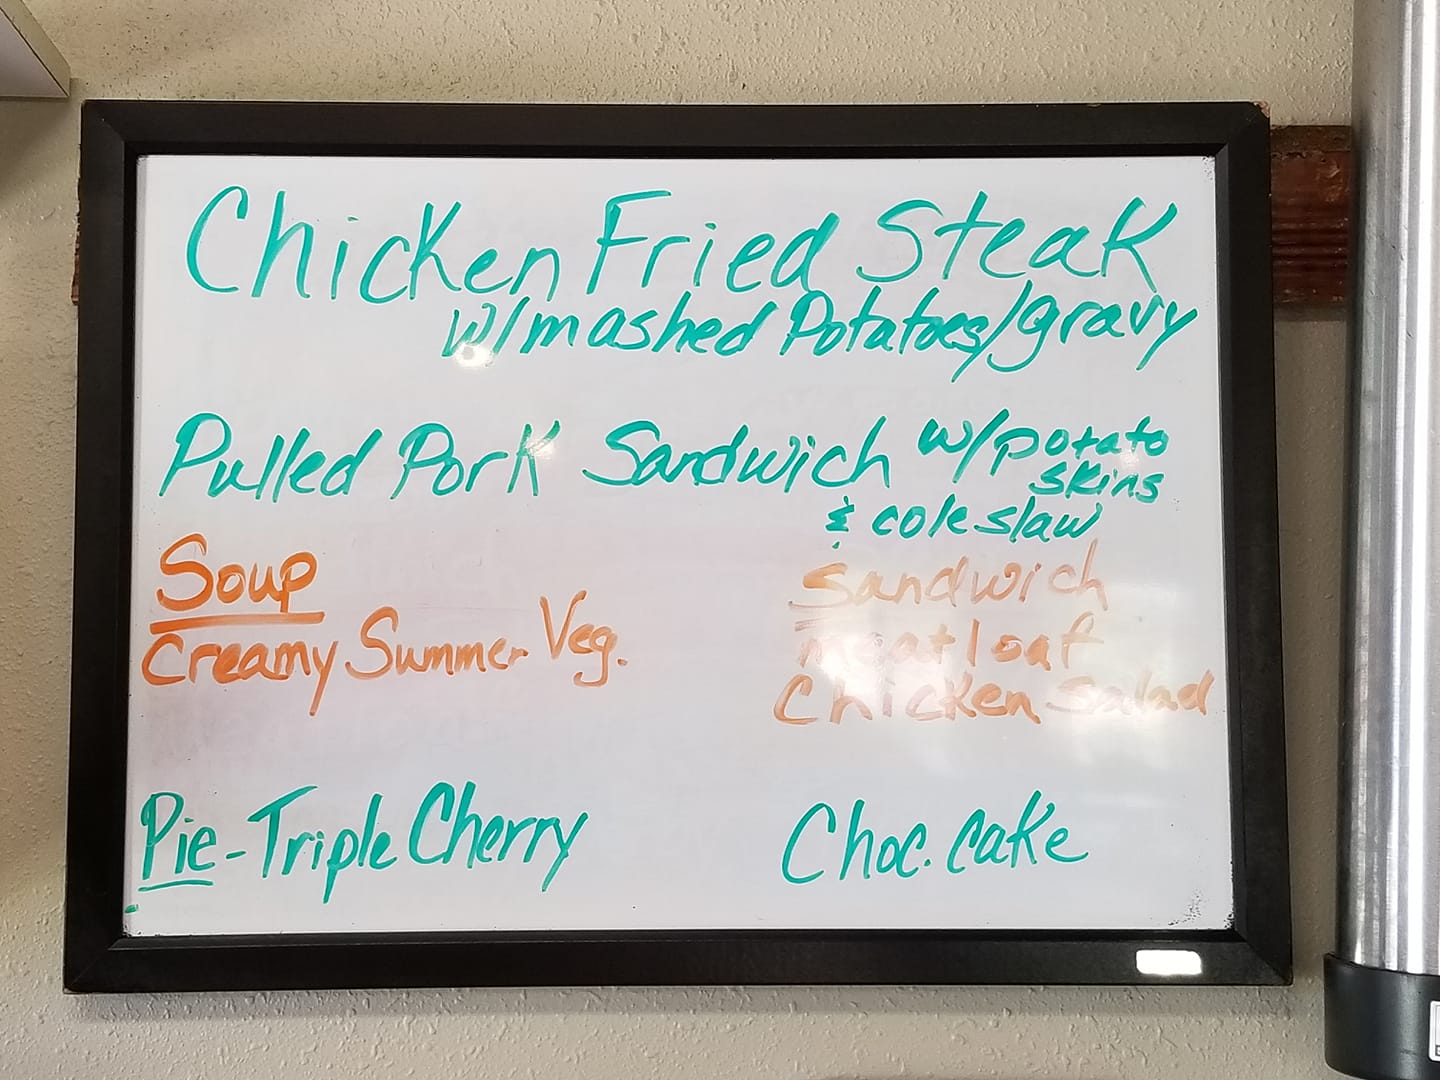 Chicken Fried Steak
w/mashed Potatoes/gravy
Pulled Pork Sandwich w/potato
skins
& coleslaw
Soup
Creamy Summer Veg.
Sandwich
meatloaf
Chicken Salad
Pie-Triple Cherry
Choc. cake